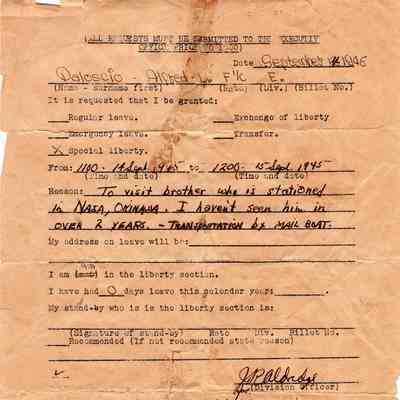 (ALL REQUESTS MUST BE SUBMITTED TO THE EXECUTIV
OFFICE PRIOR TO
Date September 1945
Daloscio - Alfred L. F 1/c E.
(Name - surname first) (Rate) (Div.) (Billet No.)
It is requested that I be granted:
Regular leave. Exchange of liberty
Emergency leave. Transfer.
X Special liberty.
From: 1100 - 14 Sept. 1945 to 1200 - 15 Sept 1945
(Time and date) (Time and date)
Reason: To visit brother who is stationed
in NAJA, OKINAWA. I haven't seen him in
OVER 2 YEARS. - TRANSPORTATION BY MAIL BOAT.
My address on leave will be:
I am in the liberty section.
I have had 0 days leave this calender year:
My stand-by who is is the liberty section is:
(Signature of stand-by) Rate Div. Billet No.
Recommended (If not recommended state reason)
J.R. Aldridge
(Division officer)